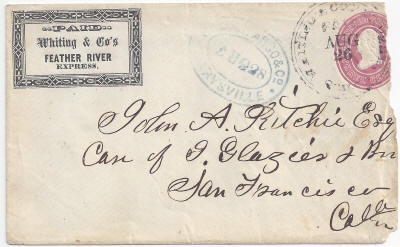 PAID
Whiting & Co's
FEATHER RIVER
EXPRESS.
& CO
AUG 28
AUG
26
John A. Ritchie Esq
Care of I. Glazier & Bro
San Francisco